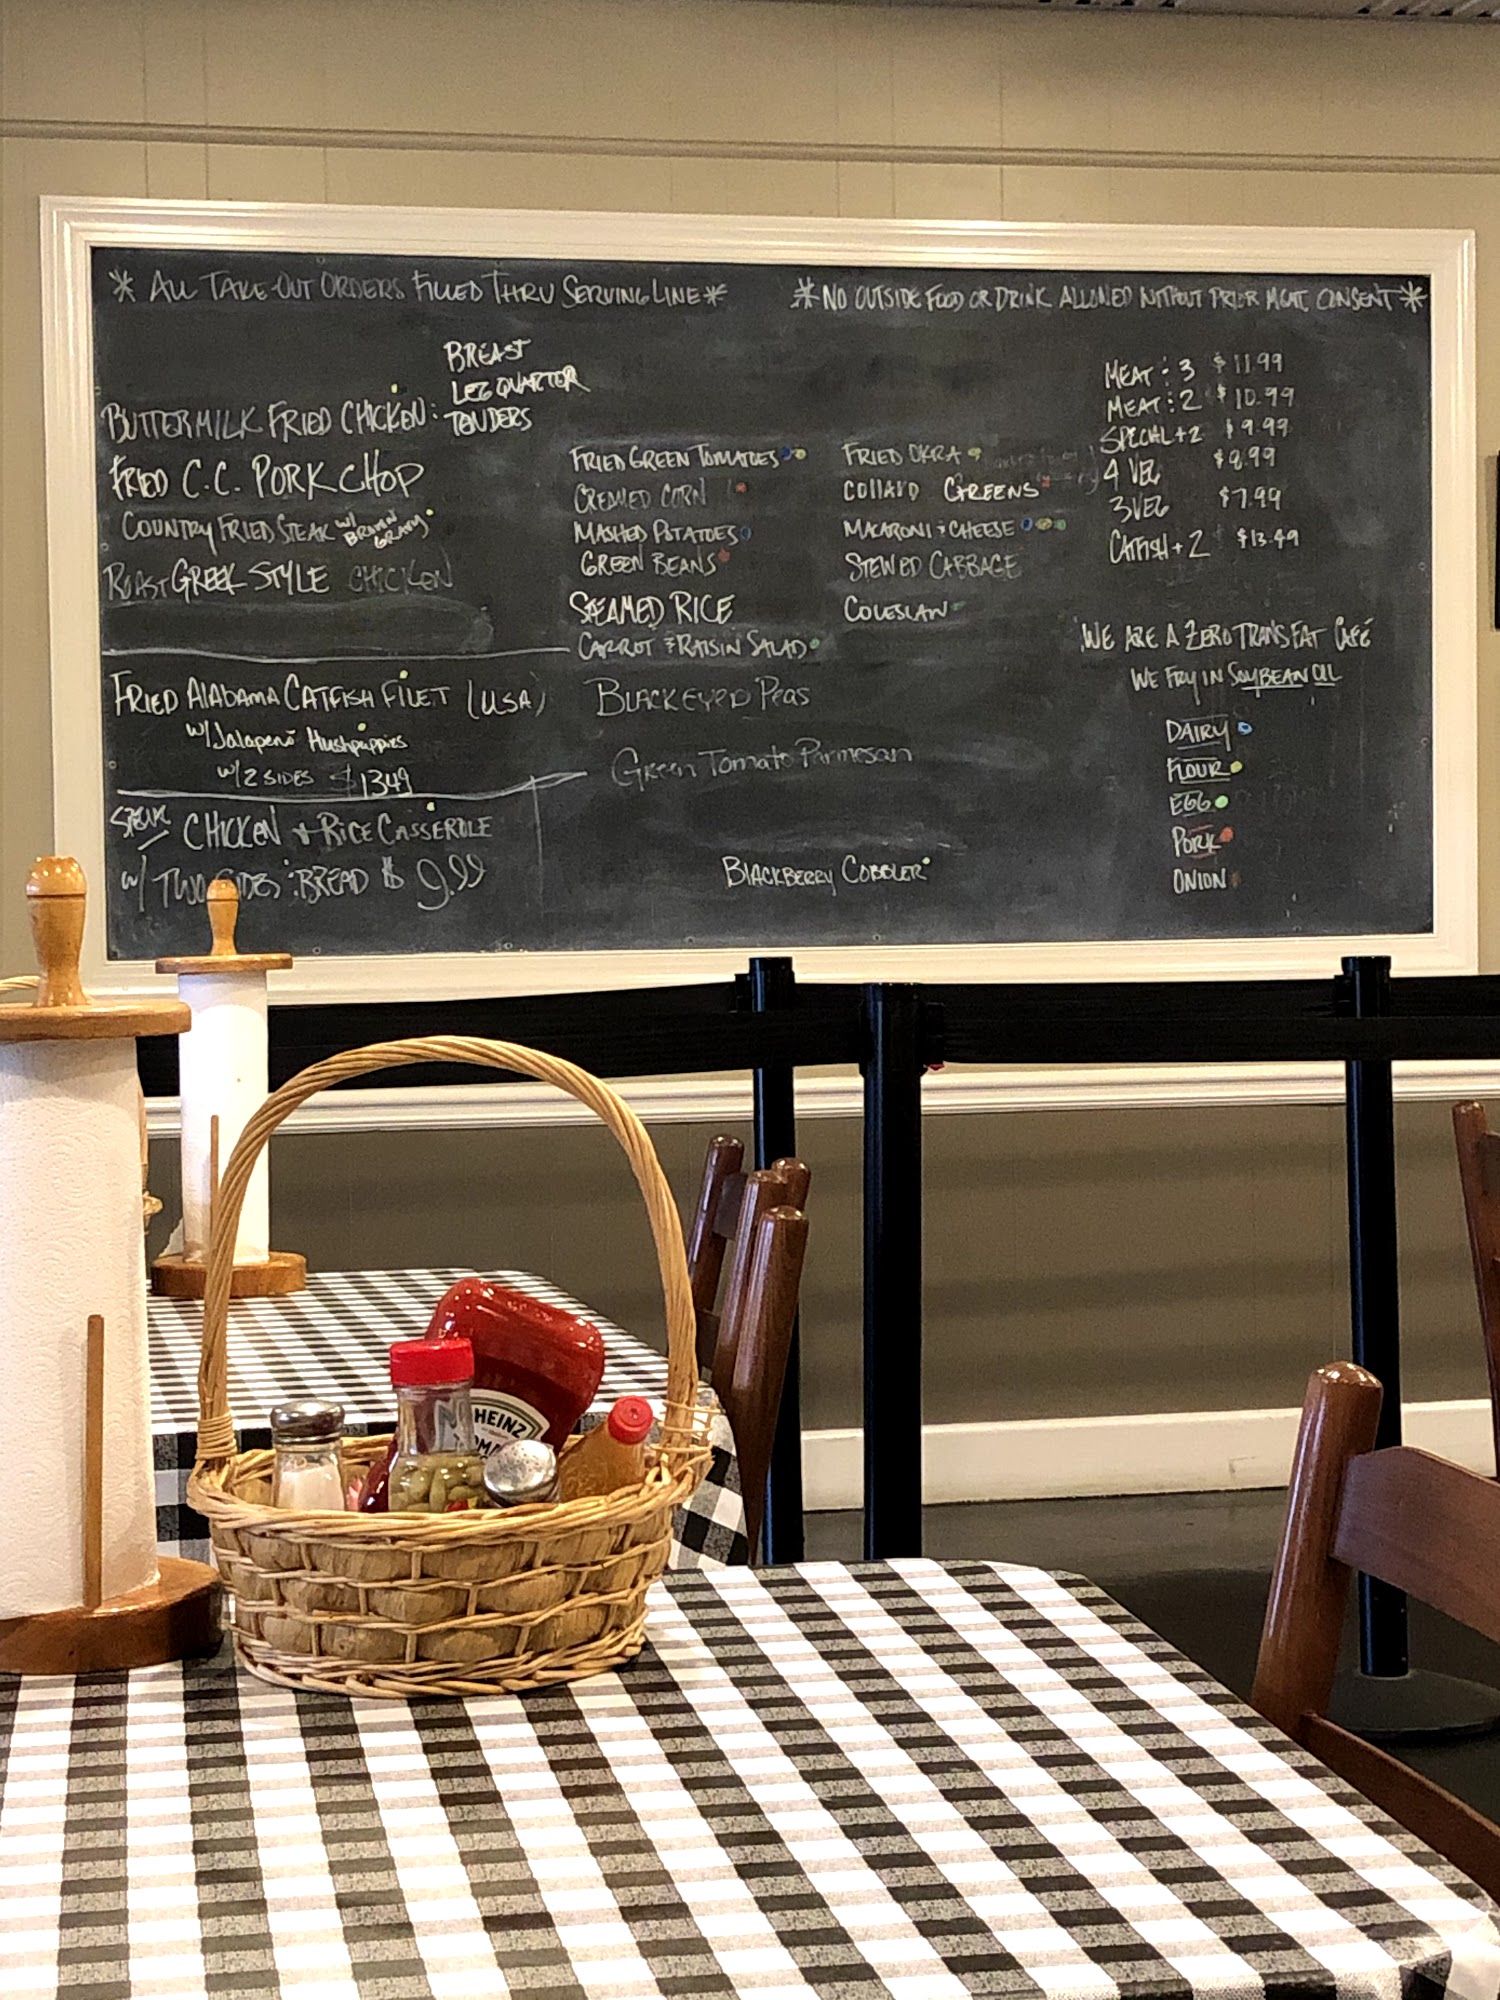 * ALL TAKE-OUT ORDERS FILLED THRU SERVING LINE *
* NO OUTSIDE FOOD OR DRINK ALLOWED WITHOUT PRIOR MGMT. CONSENT *
BREAST
LEG QUARTER
BUTTERMILK FRIED CHICKEN: TENDERS
FRIED C.C. PORK CHOP
COUNTRY FRIED STEAK w/ BROWN GRAVY
ROAST GREEK STYLE CHICKEN
FRIED ALABAMA CATFISH FILET (USA)
w/ Jalapeno Hushpuppies
w/ 2 SIDES $ 13.49
CHICKEN + RICE CASSEROLE
w/ TWO SIDES : BREAD $ 9.99
FRIED GREEN TOMATOES
CREAMED CORN
MASHED POTATOES
GREEN BEANS
STEAMED RICE
CARROT & RAISIN SALAD
BLACKEYED PEAS
Green Tomato Parmesan
FRIED OKRA
COLLARD GREENS
MACARONI + CHEESE
STEWED CABBAGE
COLESLAW
BLACKBERRY COBBLER
MEAT : 3 $ 11.99
MEAT : 2 $ 10.99
SPECIAL + 2 $ 9.99
4 VEG $ 8.99
3 VEG $ 7.99
CATFISH + 2 $ 13.49
WE ARE A ZERO TRANS FAT CAFÉ
WE FRY IN SOYBEAN OIL
DAIRY
FLOUR
EGG
PORK
ONION
HEINZ